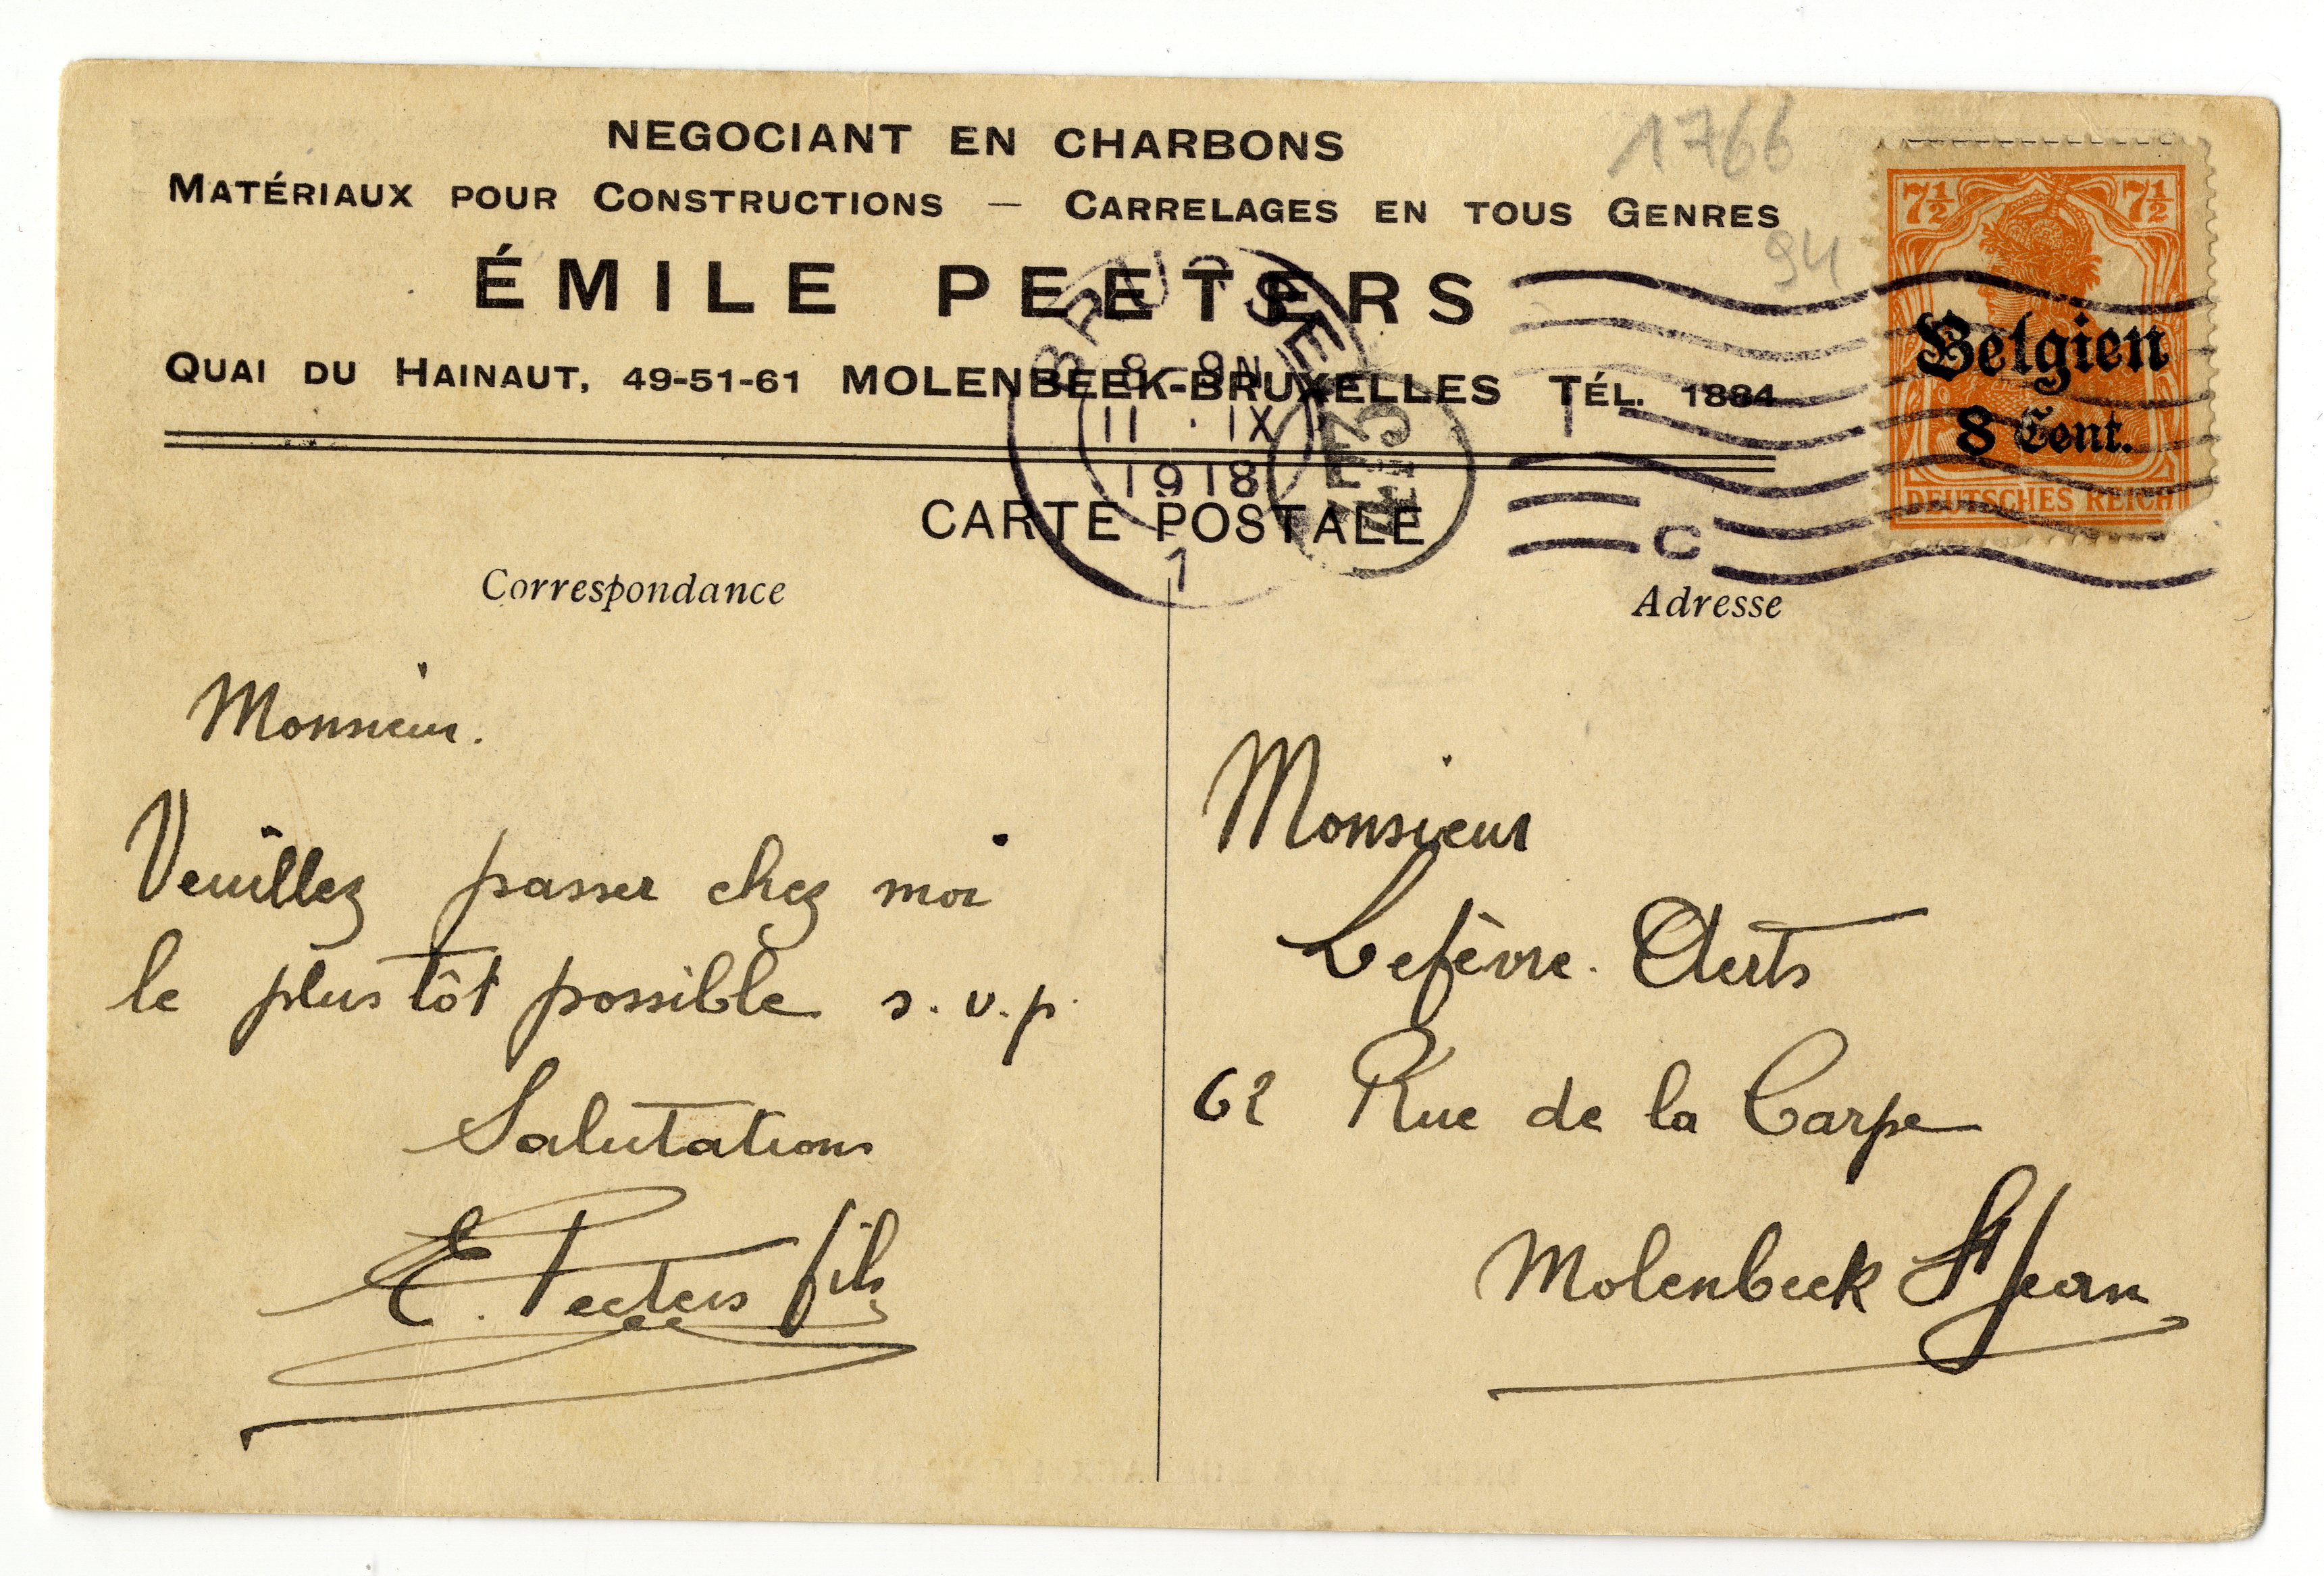 NEGOCIANT EN CHARBONS
1766
MATÉRIAUX POUR CONSTRUCTIONS — CARRELAGES EN TOUS GENRES
94
ÉMILE PEETERS
QUAI DU HAINAUT, 49-51-61 MOLENBEEK-BRUXELLES TÉL. 1884
7½ 7½
Belgien
8 Cent.
DEUTSCHES REICH
BRUSSEL
8-9N
11 · IX
1918
1
C
CARTE POSTALE
Correspondance
Adresse
Monsieur.
Veuillez passer chez moi
le plus tôt possible s.v.p.
Salutations
E. Peeters fils
Monsieur
Lefèvre. Aerts
62 Rue de la Carpe
Molenbeek St Jean